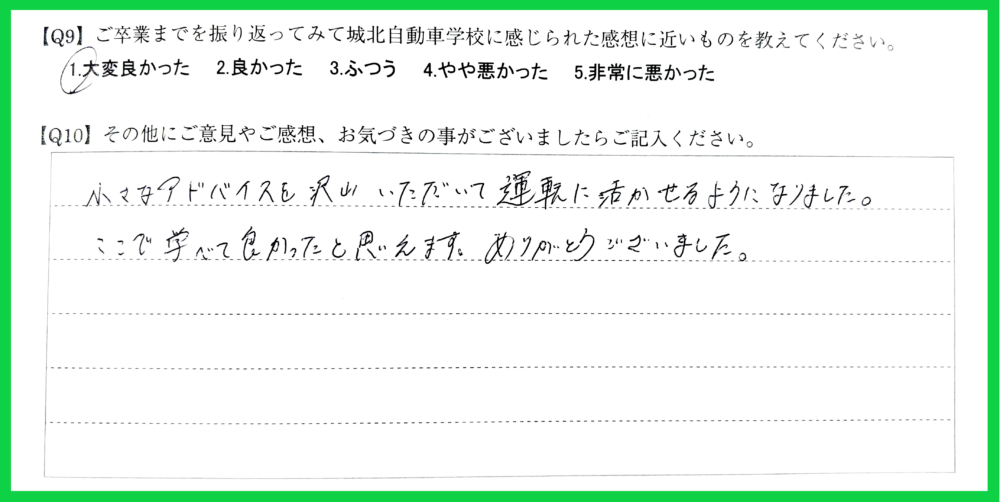 【Q9】ご卒業までを振り返ってみて城北自動車学校に感じられた感想に近いものを教えてください。
1.大変良かった 2.良かった 3.ふつう 4.やや悪かった 5.非常に悪かった
【Q10】その他にご意見やご感想、お気づきの事がございましたらご記入ください。
小さなアドバイスを沢山いただいて運転に活かせるようになりました。
ここで学べて良かったと思います。ありがとうございました。